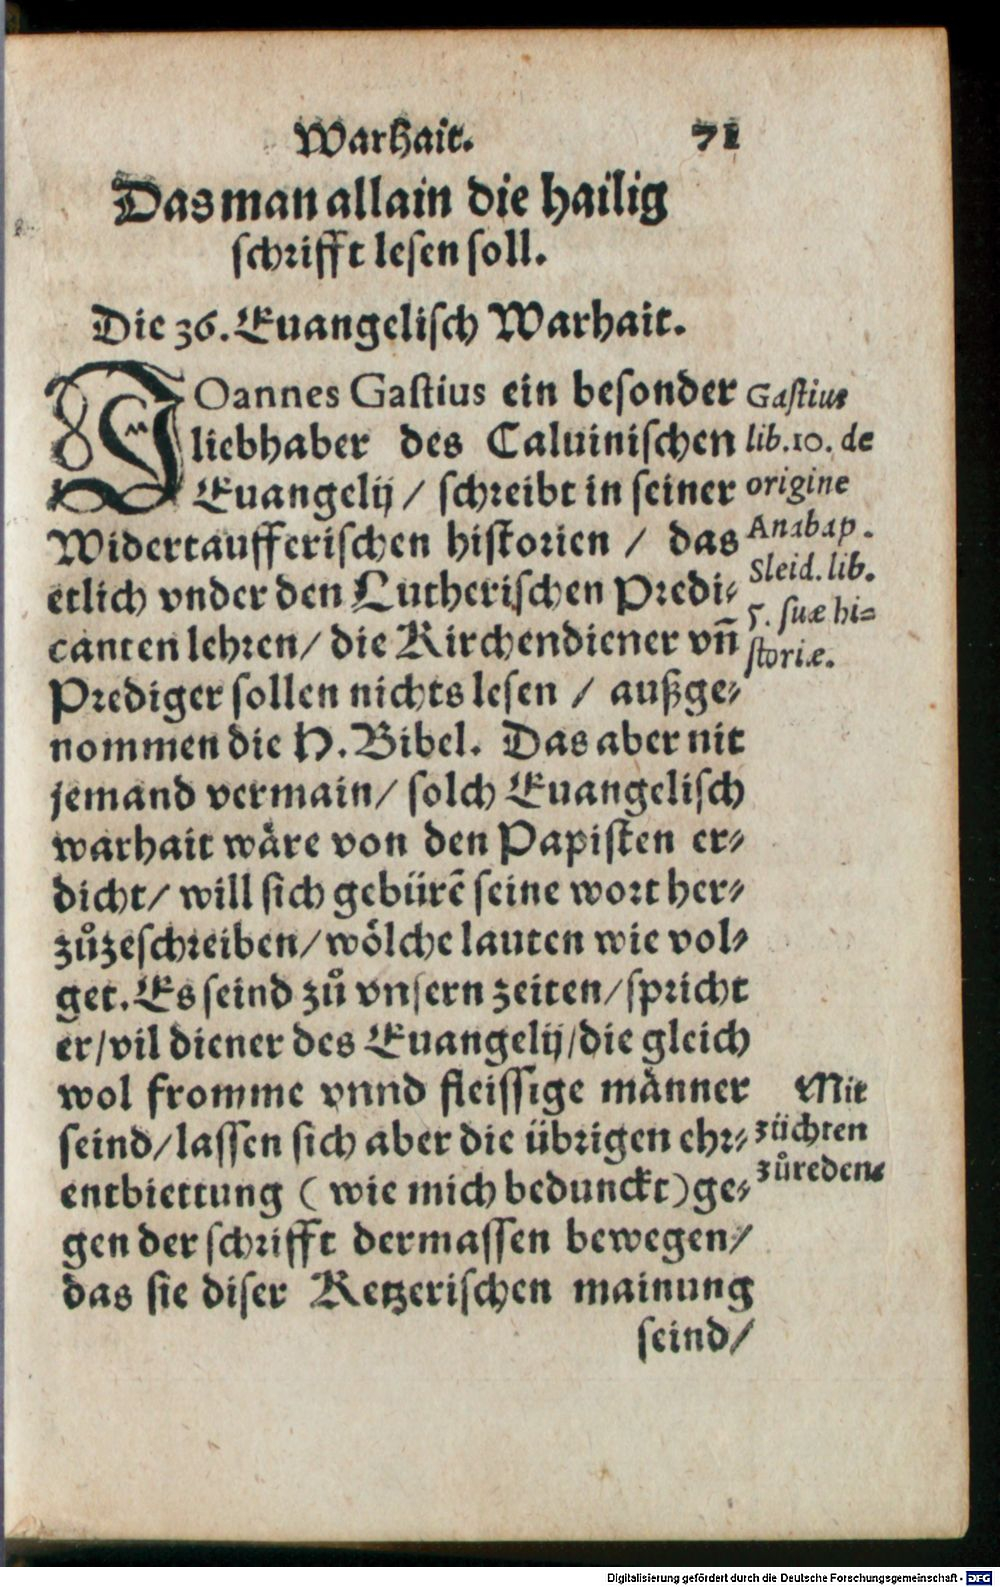 Warhait. 71
Das man allain die hailig
schrifft lesen soll.
Die 36. Euangelisch Warhait.
IOannes Gastius ein besonder
liebhaber des Caluinischen
Euangelij / schreibt in seiner
Widertaufferischen historien / das
etlich vnder den Lutherischen Predi-
canten lehren / die Kirchendiener vñ
Prediger sollen nichts lesen / außge-
nommen die H. Bibel. Das aber nit
jemand vermain / solch Euangelisch
warhait wäre von den Papisten er-
dicht / will sich gebürē seine wort her-
zůzeschreiben / wölche lauten wie vol-
get. Es seind zů vnsern zeiten / spricht
er / vil diener des Euangelij / die gleich
wol fromme vnnd fleissige männer
seind / lassen sich aber die übrigen ehr-
entbiettung ( wie mich bedunckt ) ge-
gen der schrifft dermassen bewegen /
das sie diser Ketzerischen mainung
seind /
Gastius
lib. 10. de
origine
Anabap.
Sleid. lib.
5. suæ hi-
storiæ.
Mit
züchten
zůreden.
Digitalisierung gefördert durch die Deutsche Forschungsgemeinschaft - DFG